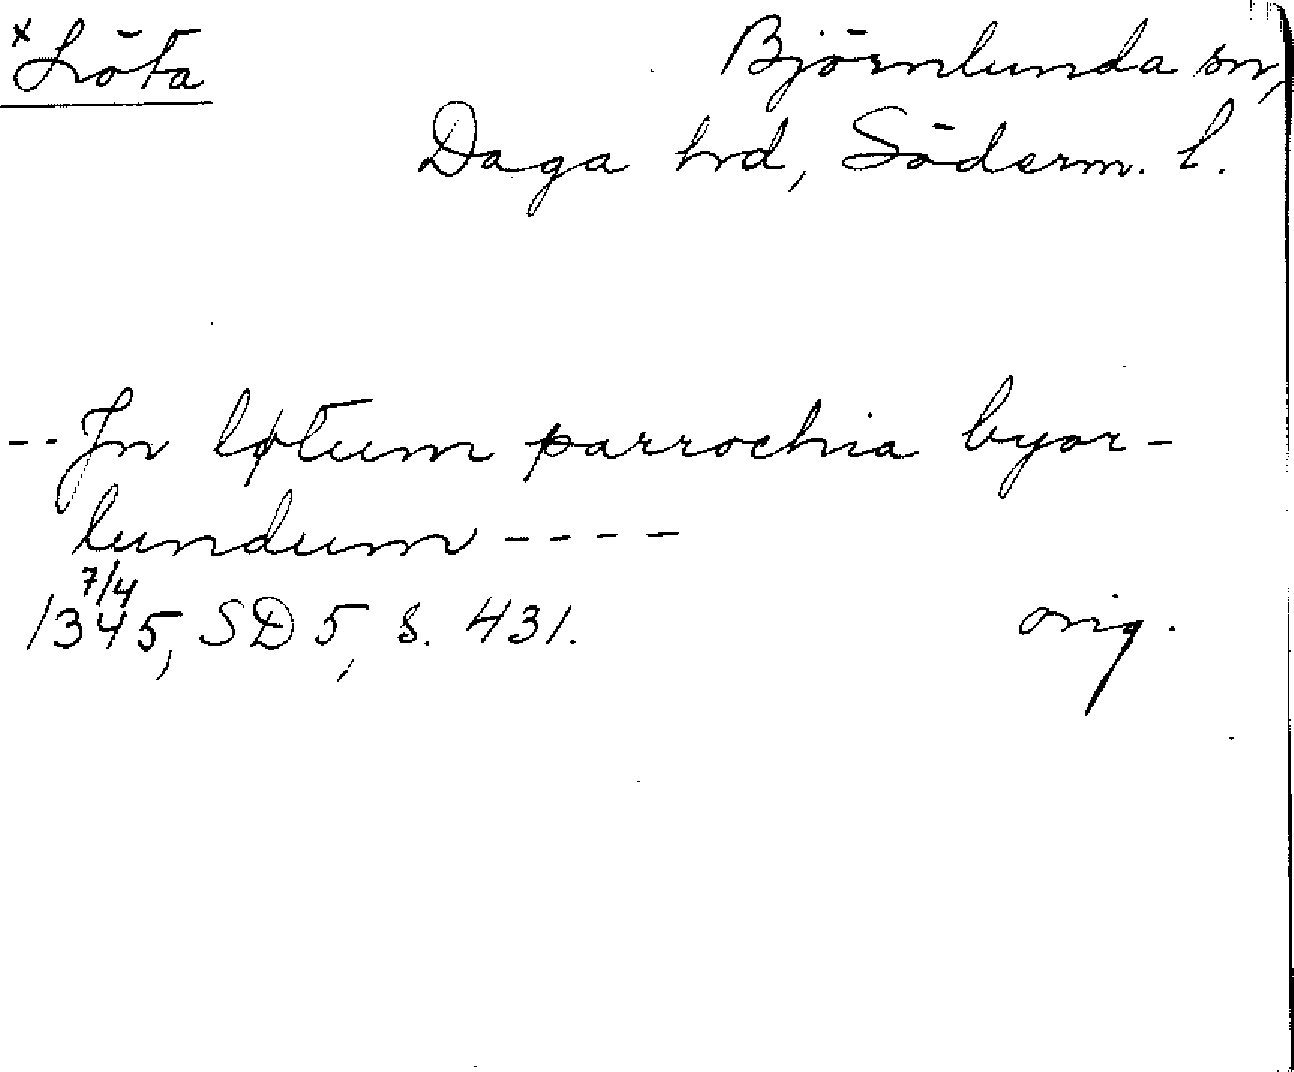 x Löta Björnlunda sn,
Daga hd, Söderm. l.
-- In løtum parrochia byor-
lundum ----
7/4
1345, SD 5, s. 431. orig.